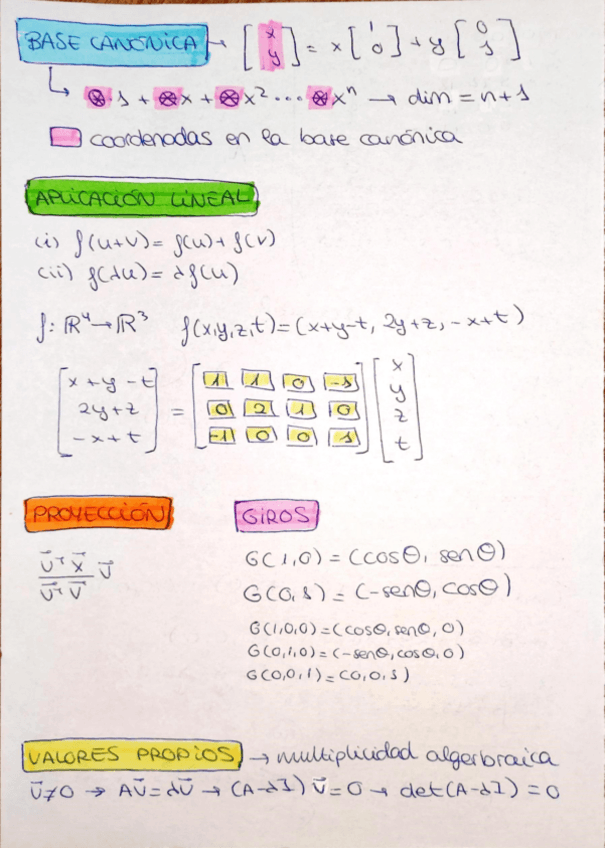 BASE CANÓNICA → [x y] = x [1 0] + y [0 1]
↳ ⊗·1 + ⊗x + ⊗x² ... ⊗xⁿ → dim = n+1
coordenadas en la base canónica
APLICACIÓN LINEAL
(i) f(u+v) = f(u) + f(v)
(ii) f(λu) = λf(u)
f: ℝ⁴→ℝ³ f(x,y,z,t) = (x+y-t, 2y+z, -x+t)
[x+y-t] = [1 1 0 -1] [x
[2y+z] [0 2 1 0] y
[-x+t] [-1 0 0 1] z
t]
PROYECCIÓN
GIROS
v⃗ᵀ x⃗ / v⃗ᵀ v⃗ v⃗
G(1,0) = (cosθ, senθ)
G(0,1) = (-senθ, cosθ)
G(1,0,0) = (cosθ, senθ, 0)
G(0,1,0) = (-senθ, cosθ, 0)
G(0,0,1) = (0,0,1)
VALORES PROPIOS → multiplicidad algerbraica
v⃗≠0 → Av⃗ = λv⃗ → (A-λI) v⃗ = 0 → det(A-λI) = 0